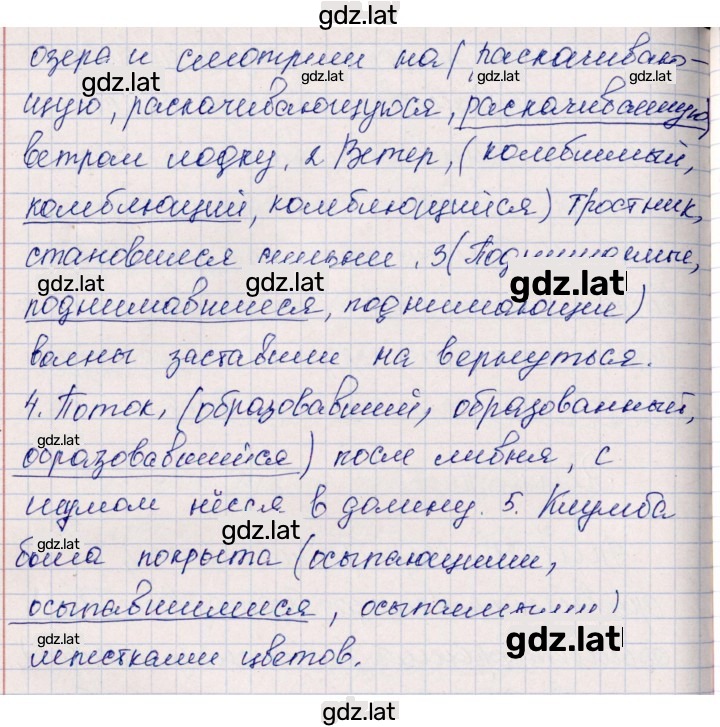 gdz.lat
озера и смотрим на (раскачиваю-
gdz.lat gdz.lat gdz.lat
щую, раскачивающуюся, раскачиваемую)
ветром лодку. 2 Ветер, (колеблимый,
колеблющий, колеблющийся) тростник,
становился сильней. 3(
gdz.lat gdz.lat gdz.lat
поднимавшиеся, поднимающие)
волны заставили на вернуться.
gdz.lat
4. Поток, (образовавший, образованный,
gdz.lat
образовавшийся) после ливня, с
шумом нёсся в долину. 5. Клумба
gdz.lat gdz.lat
была покрыта (осыпающими,
осыпавшимися,
gdz.lat gdz.lat
лепестками цветов.
gdz.lat